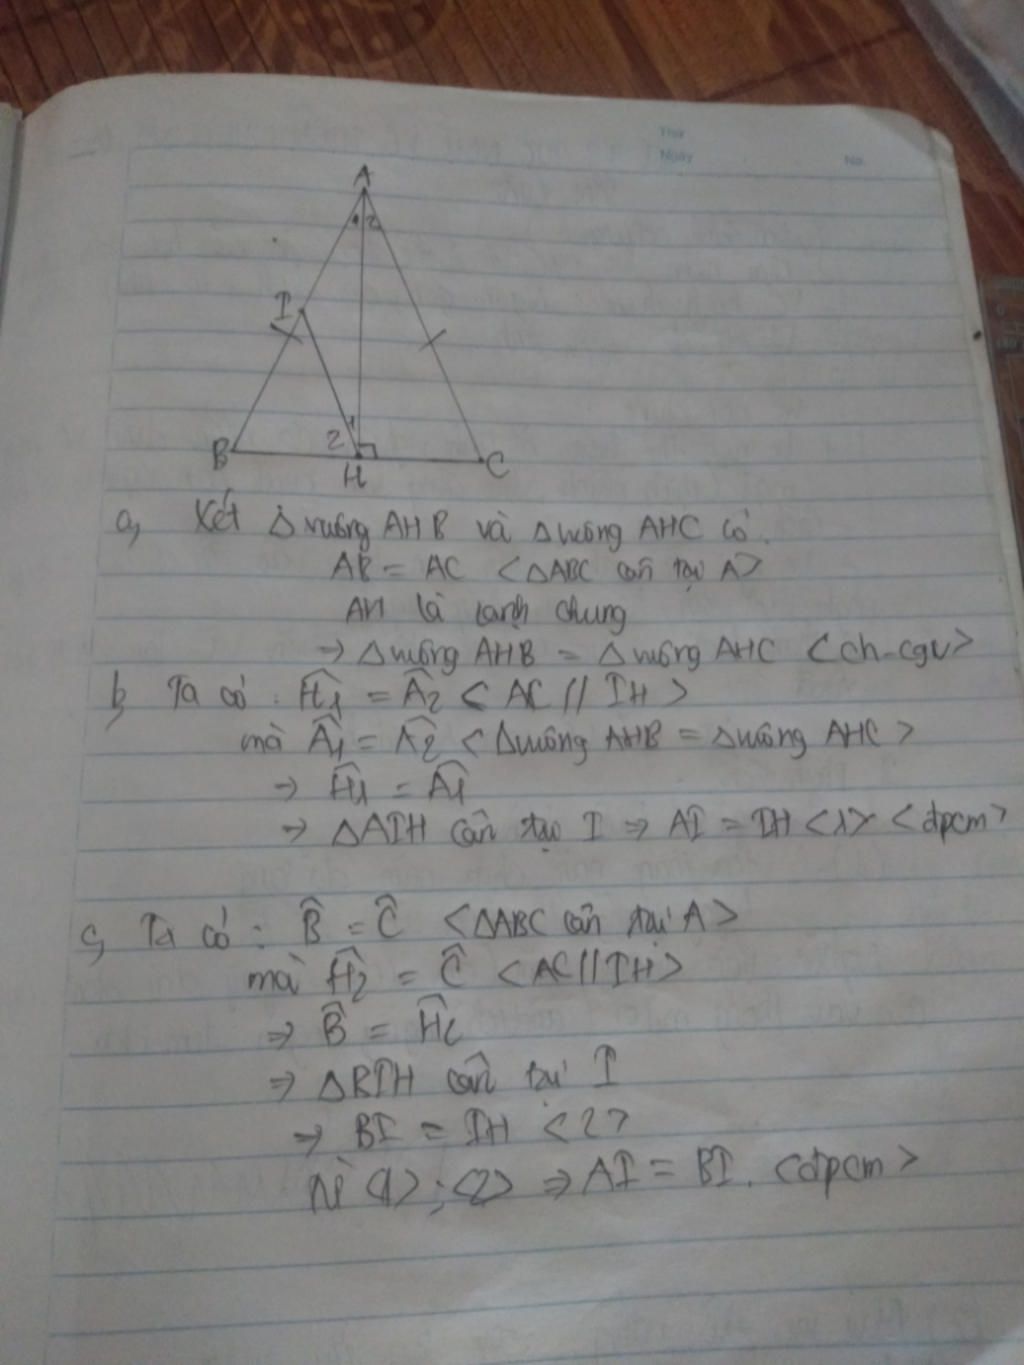 Thứ
Ngày
No.
A
1 2
I
2 1
B
H
C
a, Xét Δ vuông AHB và Δ vuông AHC có.
AB = AC <ΔABC cân tại A>
AH là cạnh chung
→ Δ vuông AHB = Δ vuông AHC <ch-cgv>
b, Ta có: Ĥ1 = Â2 < AC // IH >
mà Â1 = Â2 < Δ vuông AHB = Δ vuông AHC >
→ Ĥ1 = Â1
⇒ ΔAIH cân tại I ⇒ AI = IH <1> <đpcm>
c, Ta có: B̂ = Ĉ <ΔABC cân tại A>
mà Ĥ2 = Ĉ <AC // IH>
⇒ B̂ = Ĥ2
⇒ ΔBIH cân tại I
⇒ BI = IH <2>
Từ <1>; <2> ⇒ AI = BI. <đpcm>